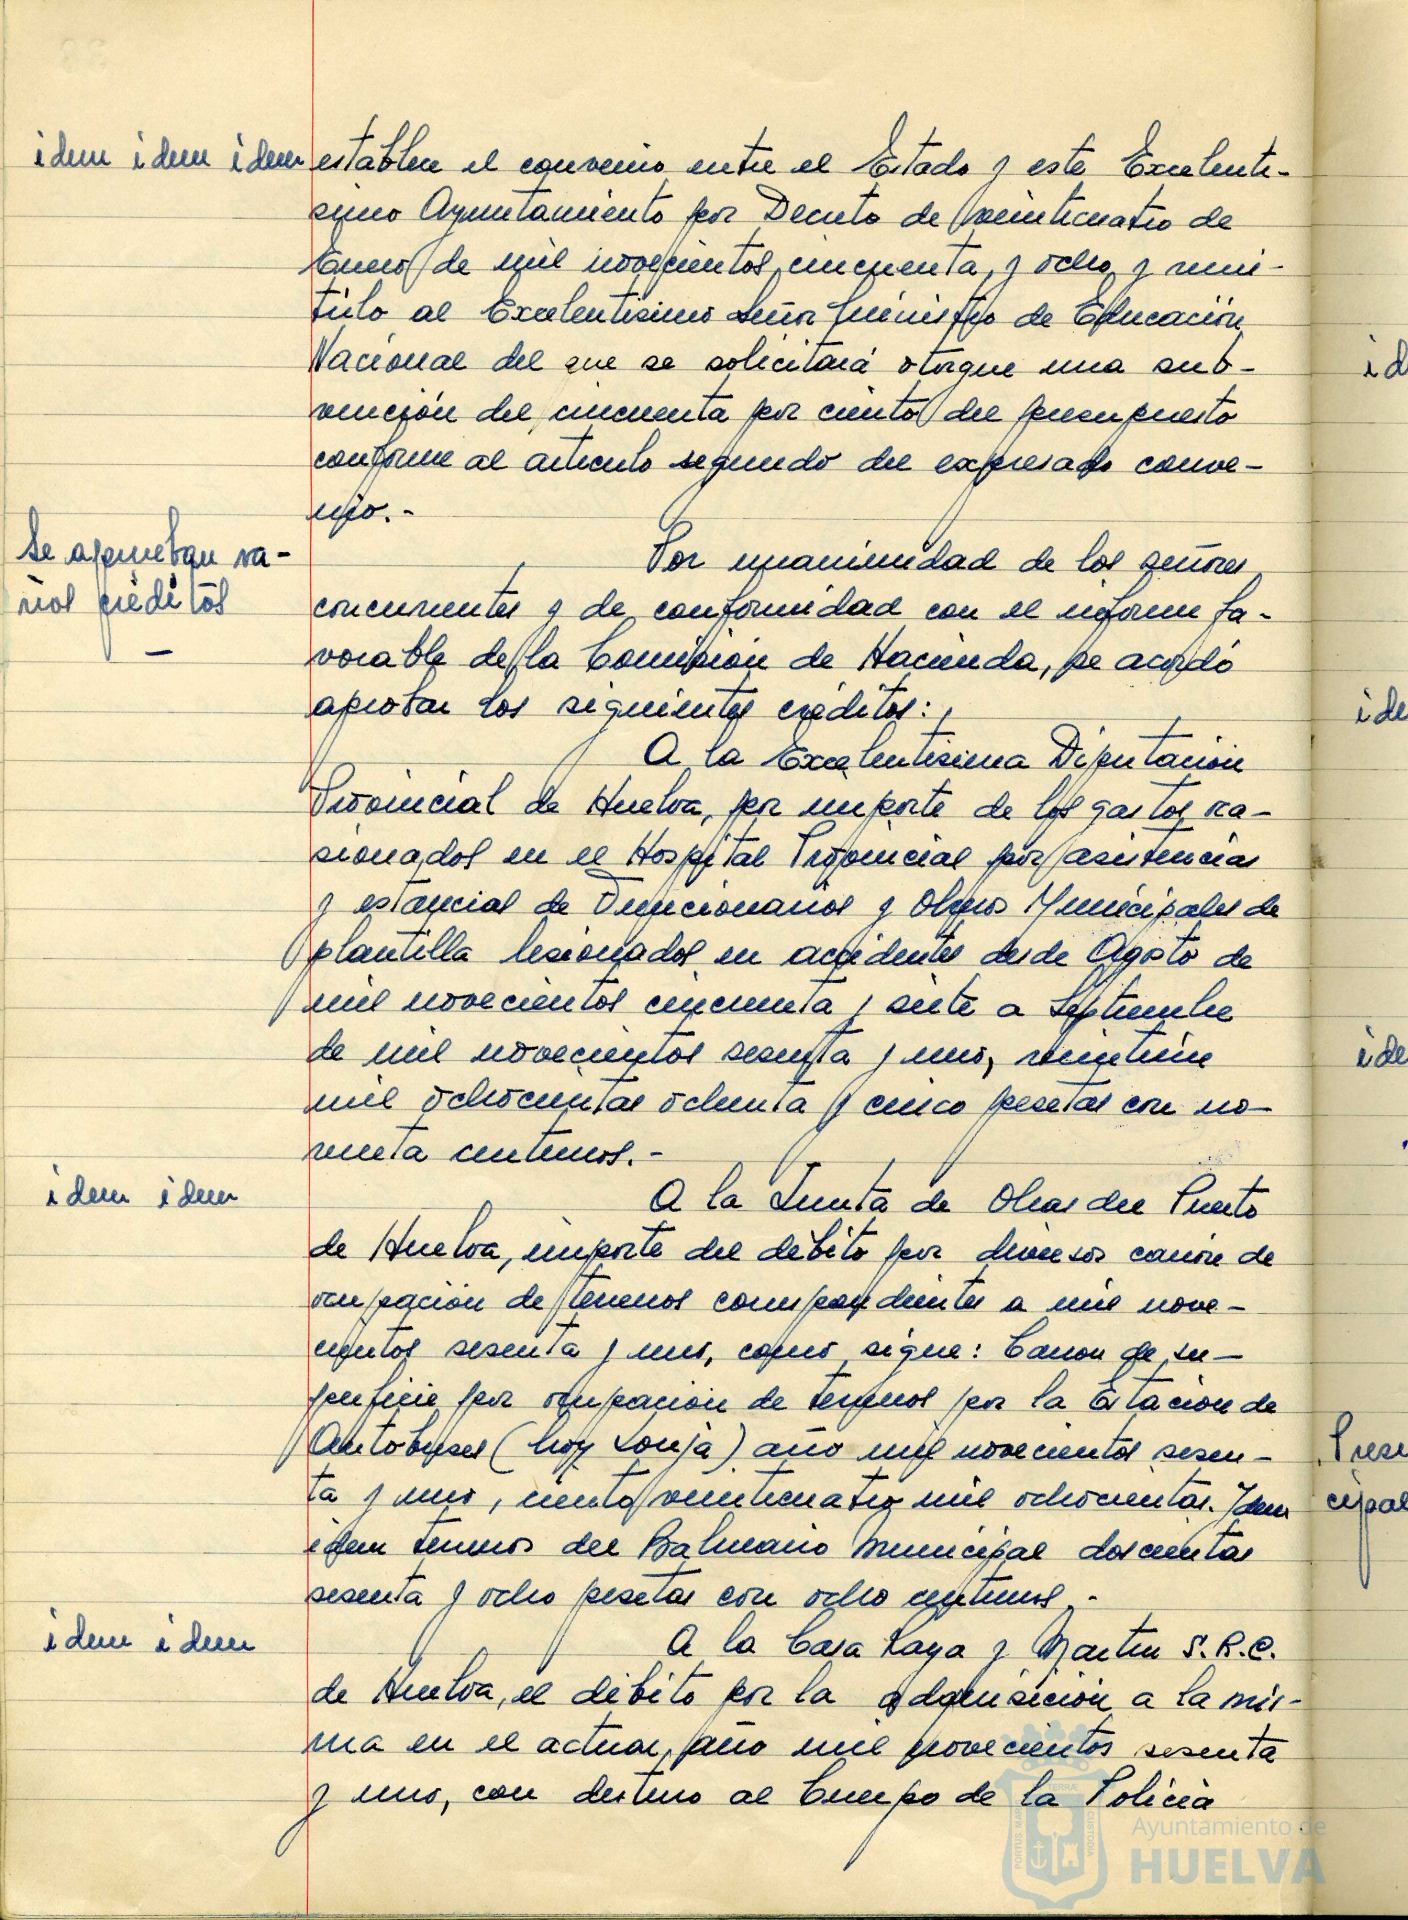 idem idem idem
establece el convenio entre el Estado y este Excelentí-
simo Ayuntamiento por Decreto de veinticuatro de
Enero de mil novecientos cincuenta y ocho y remi-
tirlo al Excelentisimo Señor Ministro de Educación
Nacional del que se solicitará otorgue una sub-
vención del cincuenta por ciento del presupuesto
conforme al articulo segundo del expresado conve-
nio.-
Se aprueban va-
rios créditos
—
Por unanimidad de los señores
concurrentes y de conformidad con el informe fa-
vorable de la Comisión de Hacienda, se acordó
aprobar los siguientes créditos:
A la Excelentisima Diputación
Provincial de Huelva, por importe de los gastos oca-
sionados en el Hospital Provincial por asistencias
y estancias de Funcionarios y Obreros Municipales de
plantilla lesionados en accidentes desde Agosto de
mil novecientos cincuenta y siete a Septiembre
de mil novecientos sesenta y uno, veintiun
mil ochocientas ochenta y cinco pesetas con no-
venta centimos.-
idem idem
A la Junta de Obras del Puerto
de Huelva, importe del débito por diversos canon de
ocupación de terrenos correspondientes a mil nove-
cientos sesenta y uno, como sigue: Canon de su-
perficie por ocupación de terrenos por la Estación de
Autobuses (hoy Lonja) año mil novecientos sesen-
ta y uno, ciento veinticuatro mil ochocientas. Idem
idem terrenos del Balneario Municipal doscientas
sesenta y ocho pesetas con ocho centimos.-
idem idem
A la Casa Raya y Martin S.R.C.
de Huelva, el débito por la adquisición a la mis-
ma en el actual año mil novecientos sesenta
y uno, con destino al Cuerpo de la Policia
id
ide
ide
Prese
cipal
PORTUS MARIS
TERRAE
CUSTODIA
Ayuntamiento de
HUELVA